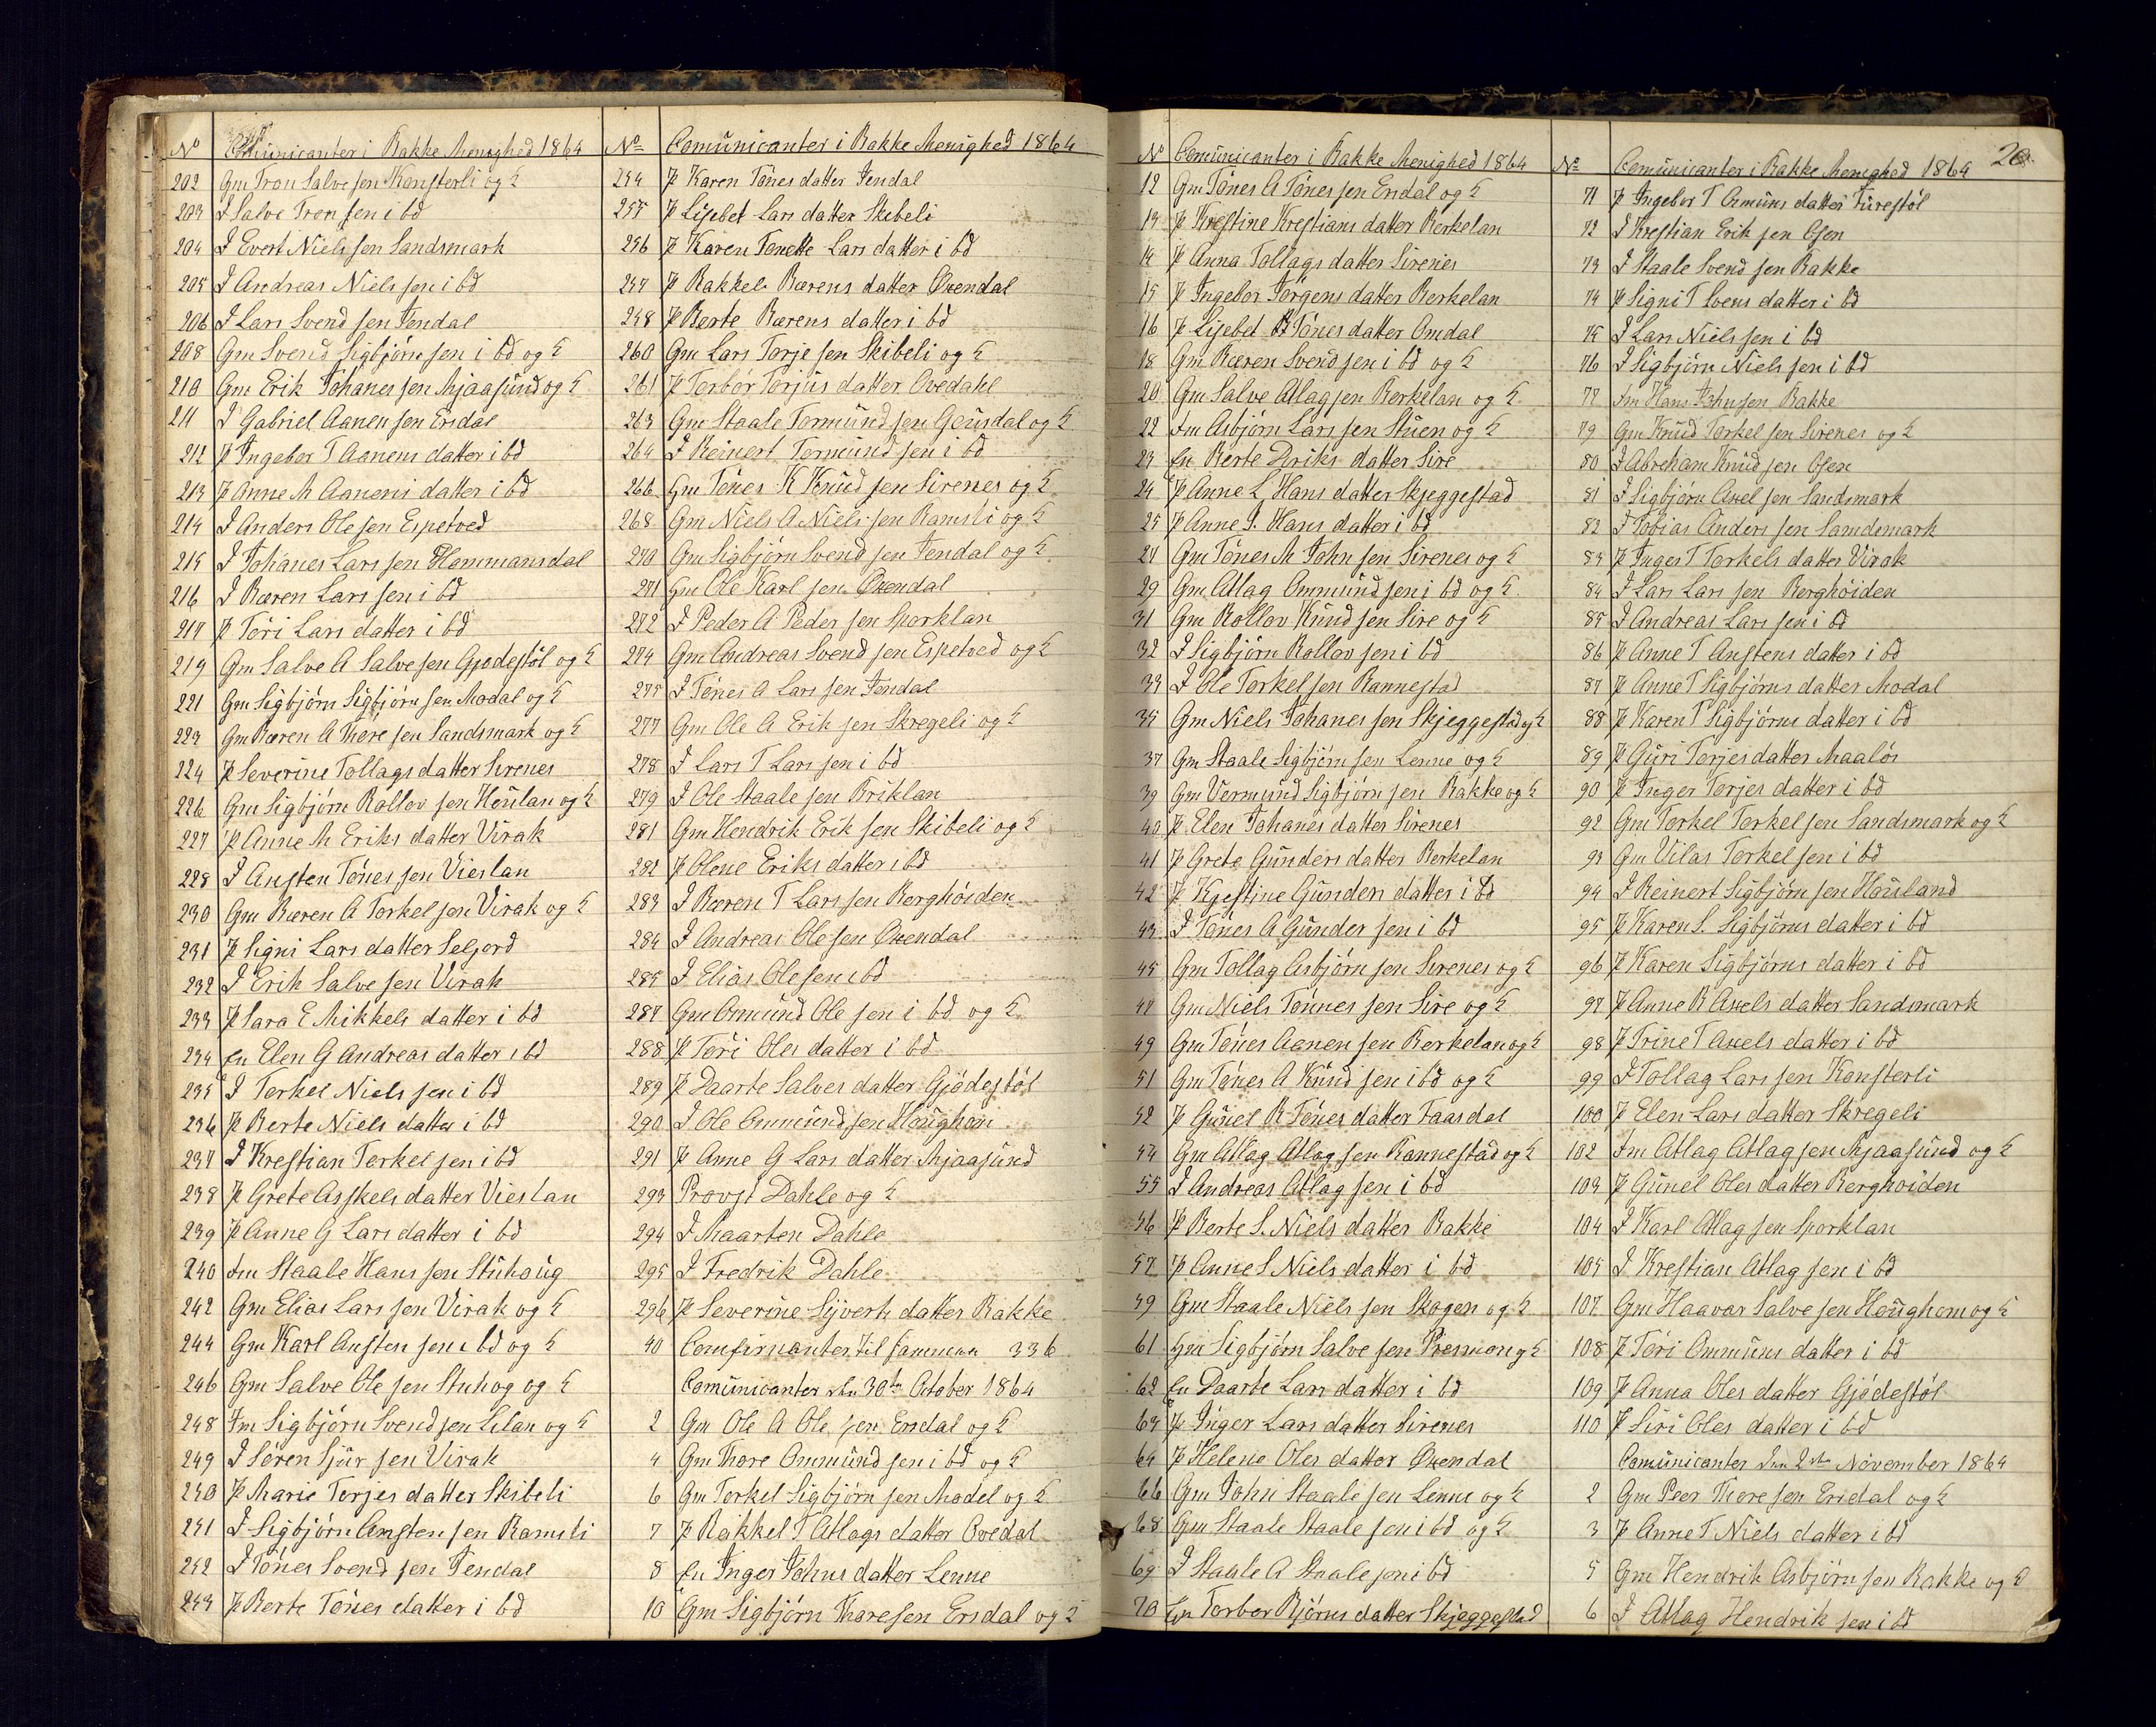 No Comunicanter i Bakke Menighed 1864
202 Gm Tron Salve sen Konsterli og H
203 J Salve Tron sen i bd
204 J Evert Niels sen Sandsmark
205 J Andreas Niels sen i bd
206 J Lars Svend sen Jendal
208 Gm Svend Sigbjørn sen i bd og H
210 Gm Erik Johanes sen Mjaasund og H
211 J Gabriel Aanen sen Ersdal
212 P Ingebor T Aanens datter i bd
213 P Anne M Aanens datter i bd
214 J Anders Ole sen Espetved
215 J Johanes Lars sen Hommansdal
216 J Bæren Lars sen i bd
217 P Tøri Lars datter i bd
219 Gm Salve A Salve sen Gjødestøl og H
221 Gm Sigbjørn Sigbjørn sen Modal og H
223 Gm Bæren A Thore sen Sandsmark og H
224 P Severine Tollags datter Sirenes
226 Gm Sigbjørn Rollov sen Houlan og H
227 P Anne M Eriks datter Virak
228 J Austen Tønes sen Vieslan
230 Gm Bæren A Torkel sen Virak og H
231 P Signi Lars datter Seljord
232 J Erik Salve sen Virak
233 P Sara E Mikkels datter i bd
234 En Elen G Andreas datter i bd
235 J Torkel Niels sen i bd
236 P Berte Niels datter i bd
237 J Krestian Torkel sen i bd
238 P Grete Asskels datter Vieslan
239 P Anne G Lars datter i bd
240 Im Staale Hans sen Stuhoug
242 Gm Elias Lars sen Virak og H
244 Gm Karl Austen sen i bd og H
246 Gm Salve Ole sen Stuhog og H
248 Im Sigbjørn Svend sen Lilan og H
249 J Søren Sjur sen Virak
250 P Marie Torjes datter Skibeli
251 J Sigbjørn Austen sen Ramsli
252 J Tønes Svend sen Jendal
253 P Berte Tønes datter i bd
No Comunicanter i Bakke Menighed 1864
254 P Karen Tønes datter Jendal
255 P Lisebet Lars datter Skibeli
256 P Karen Tonette Lars datter i bd
257 P Rakkel Bærens datter Øxendal
258 P Berte Bærens datter i bd
260 Gm Lars Torje sen Skibeli og H
261 P Torbor Torjus datter Ovedahl
263 Gm Staale Tormund sen Gousdal og H
264 J Reinert Tormund sen i bd
266 Gm Tønes K Knud sen Sirenes og H
268 Gm Niels A Niels sen Ramsli og H
270 Gm Sigbjørn Svend sen Jendal og H
271 Gm Ole Karl sen Øxendal
272 J Peder A Peder sen Sporklan
274 Gm Andreas Svend sen Espetved og H
275 J Tønes A Lars sen Jendal
277 Gm Ole A Erik sen Skregeli og H
278 J Lars T Lars sen i bd
279 J Ole Staale sen Briklan
281 Gm Hendrik Erik sen Skibeli og H
282 P Olene Eriks datter i bd
283 J Bæren T Lars sen Berghøiden
284 J Andreas Ole sen Øxendal
285 J Elias Ole sen i bd
287 Gm Omund Ole sen i bd og H
288 P Tøri Oles datter i bd
289 P Daarte Salves datter Gjødestøl
290 J Ole Ommund sen Houghom
291 P Anne G Lars datter Mjaasund
293 Provst Dahle og H
294 J Maarten Dahle
295 J Fredrik Dahle
296 P Severine Sijverts datter Bakke
40 Comfirmanter, til sammen 336
Comunicanter den 30te October 1864
2 Gm Ole A Ole sen Ersdal og H
4 Gm Thore Ommund sen i bd og H
6 Gm Torkel Sigbjørn sen Model og H
7 P Rakkel T Atlags datter Ovedal
8 En Inger Johns datter Lenne
10 Gm Sigbjørn Thore sen Ersdal og H
No Comunicanter i Bakke Menighed 1864
12 Gm Tønes A Tønes sen Ersdal og H
13 P Krestine Krestians datter Berkelan
14 P Anna Tollags datter Sirenes
15 P Ingebor Jørgens datter Berkelan
16 P Lisebet B Tønes datter Omdal
18 Gm Bæren Svend sen i bd og H
20 Gm Salve Atlag sen Berkelan og H
22 Im Asbjørn Lars sen Stuen og H
23 En Berte Diriks datter Sire
24 P Anne L Hans datter Skjeggestad
25 P Anne S. Hans datter i bd
27 Gm Tønes M John sen Sirenes og H
29 Gm Atlag Ommund sen i bd og H
31 Gm Rollov Knud sen Sire og H
32 J Sigbjørn Rollov sen i bd
33 J Ole Torkel sen Rannestad
35 Gm Niels Johanes sen Skjeggestad og H
37 Gm Staale Sigbjørn sen Lenne og H
39 Gm Vermund Sigbjørn sen Bakke og H
40 P Elen Johanes datter Sirenes
41 P Grete Gunders datter Berkelan
42 P Kjestine Gunders datter i bd
43 J Tønes A Gunder sen i bd
45 Gm Tollag Asbjørn sen Sirenes og H
47 Gm Niels Tønnes sen Sire og H
49 Gm Tønes Aanen sen Berkelan og H
51 Gm Tønes A Knud sen i bd og H
52 P Gunel B Tønes datter Faasdal
54 Gm Atlag Atlag sen Rannestad og H
55 J Andreas Atlag sen i bd
56 P Berte S. Niels datter Bakke
57 P Anne S Niels datter i bd
59 Gm Staale Niels sen Skogen og H
61 Gm Sigbjørn Salve sen Presmon og H
62 En Daarte Lars datter i bd
63 P Inger Lars datter Sirenes
64 P Helene Oles datter Øxendal
66 Gm John Staale sen Lenne og H
68 Gm Staale Staale sen i bd og H
69 J Staale A Staale sen i bd
70 En Torbor Bjørns datter Skjeggestad
20
No Comunicanter i Bakke Menighed 1864
71 P Ingebor T Omuns datter Furestøl
72 J Krestian Erik sen Osen
73 J Staale Svend sen Bakke
74 P Signi T Svens datter i bd
75 J Lars Niels sen i bd
76 J Sigbjørn Niels sen i bd
77 Im Hans John sen Bakke
79 Gm Knud Torkel sen Sirenes og H
80 J Abreham Knud sen Osen
81 J Sigbjørn Axel sen Sandsmark
82 J Tobias Anders sen Samdsmark
83 P Inger T Torkels datter Virak
84 J Lars Lars sen Berghøiden
85 J Andreas Lars sen i bd
86 P Anne T Austens datter i bd
87 P Anne T Sigbjørns datter Modal
88 P Karen T Sigbjørns datter i bd
89 P Guri Torjes datter Maaløs
90 P Inger Torjes datter i bd
92 Gm Torkel Torkel sen Sandsmark og H
93 Gm Vilas Torkel sen i bd
94 J Reinert Sigbjørn sen Houland
95 P Karen S. Sigbjørns datter i bd
96 P Karen Sigbjørns datter i bd
97 P Anne B Axels datter Sandsmark
98 P Trine T Axels datter i bd
99 J Tollag Lars sen Konsterli
100 P Elen Lars datter Skregeli
102 Im Atlag Atlag sen Mjaasund og H
103 P Gunel Oles datter Berghøiden
104 J Karl Atlag sen Sporklan
105 J Krestian Atlag sen i bd
107 Gm Haavar Salve sen Houghom og H
108 P Tøri Ommuns datter i bd
109 P Anna Oles datter Gjødestøl
110 P Siri Oles datter i bd
Comunicanter den 2den November 1864
2 Gm Peer Thore sen Ersdal og H
3 P Anne T Niels datter i bd
5 Gm Hendrik Asbjørn sen Bakke og H
6 J Atlag Hendrik sen i bd